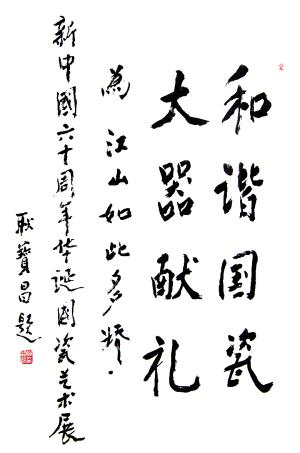 和谐国瓷
大器献礼
为江山如此多娇·
新中國六十周年华诞國瓷艺术展
耿寶昌题